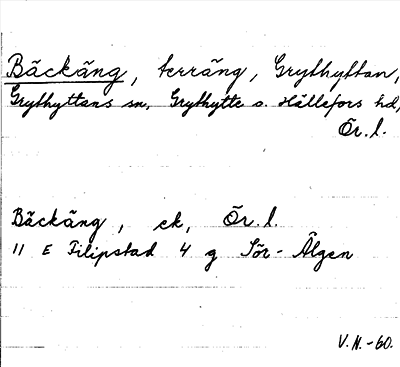 Bäckäng, terräng, Grythyttan,
Grythyttans sn, Grythytte o. Hällefors hd,
Ör. l.
Bäckäng, ek, Ör. l.
11 E Filipstad 4 g Sör-Älgen
V. N. -60.